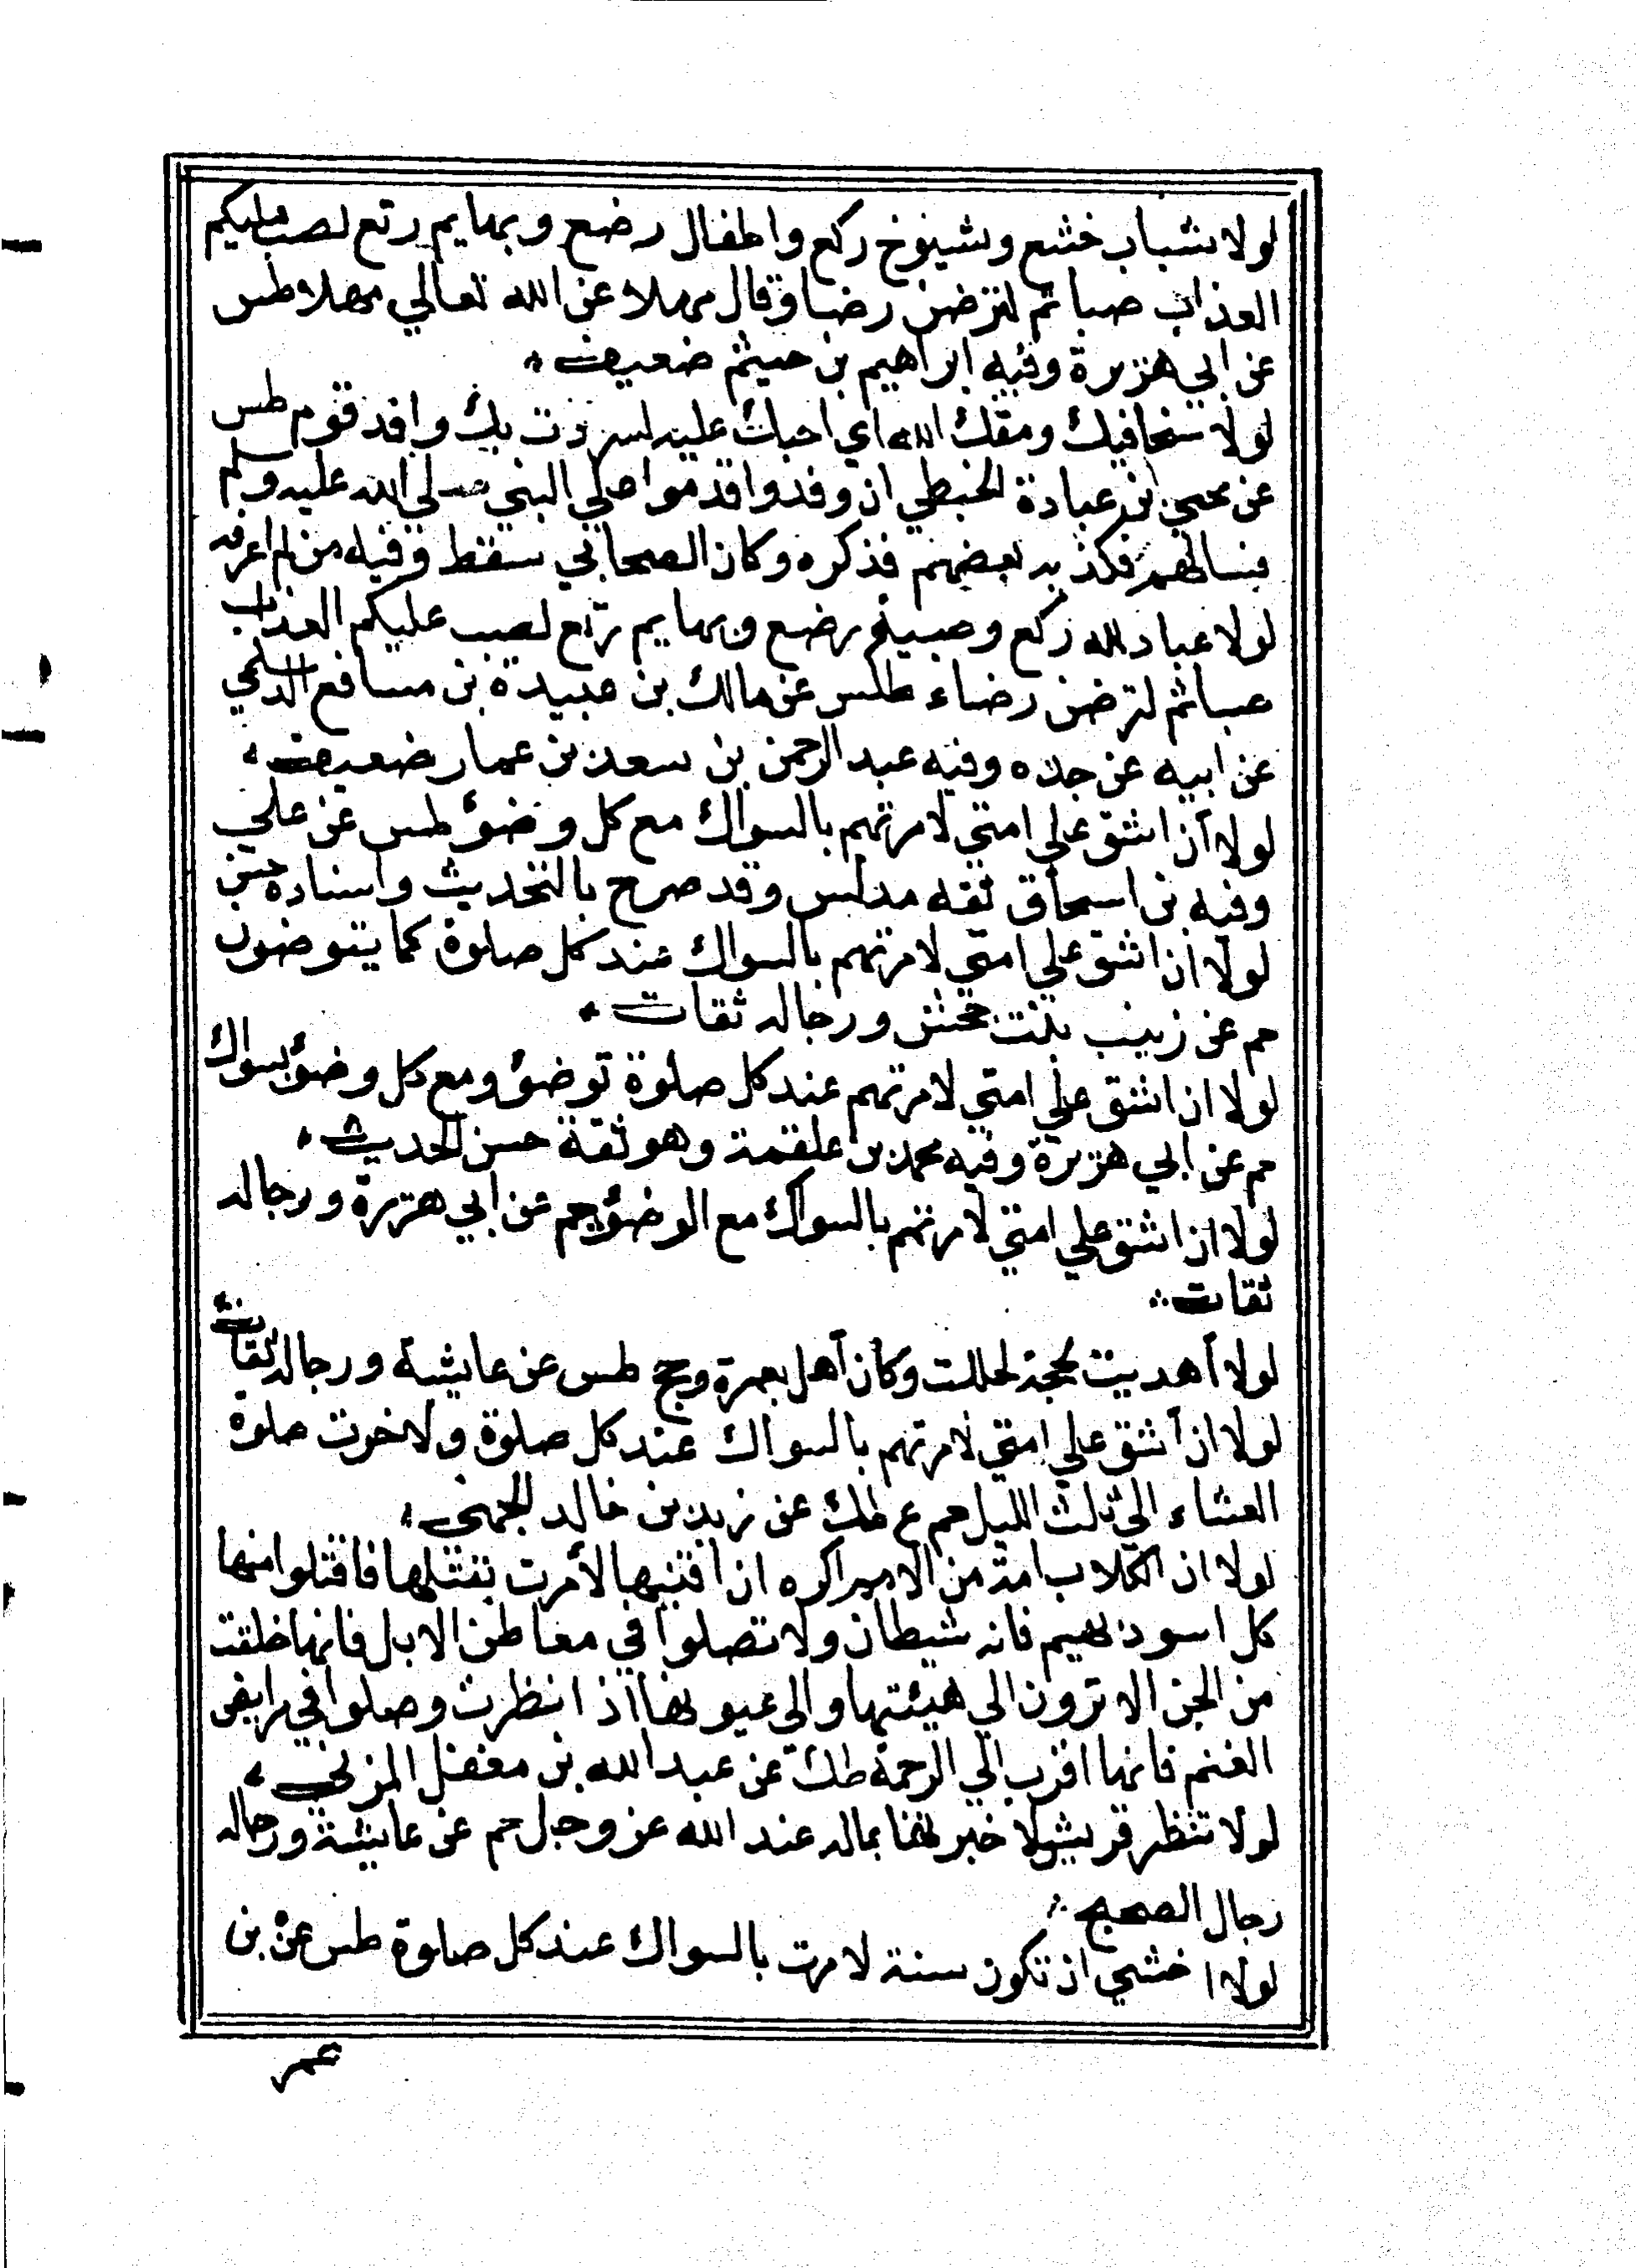 لولا شباب خشع وشيوخ ركع واطفال رضع وبهايم رتع لصب عليكم
العذاب صبا ثم لترضن رضا وقال مهلا عن الله تعالي مهلا طس
عن ابي هريرة وفيه ابراهيم بن خيثم ضعيف
لولا سخافيك ومقك الله اي احبك عليه لسردت بك وافد قوم طس
عن ابن عبادة الخبطي ان وفدوا قدموا علي النبي صلي الله عليه وسلم
فسالهم فكذبه بعضهم فذكره وكان الصحابي سقط وفيه من لم اعرفه
لولا عباد لله ركع وصبية رضع وبهايم رتع لصب عليكم العذاب
صبا ثم لترضن رضاء طس عن مالك بن عبيدة بن مسافع الديلمي
عن ابيه عن جده وفيه عبد الرحمن بن سعد بن عمار ضعيف
لولا ان اشق علي امتي لامرتهم بالسواك مع كل وضؤ طس عن علي
وفيه بن اسحاق ثقه مدلس وقد صرح بالتحديث واسناده حسن
لولا ان اشق علي امتي لامرتهم بالسواك عند كل صلوة كما يتوضون
حم عن زينب بنت جحش ورجاله ثقات
لولا ان اشق علي امتي لامرتهم عند كل صلوة توضؤ ومع كل وضؤ بسواك
حم عن ابي هريرة وفيه محمد بن علقمة وهو ثقة حسن الحديث
لولا ان اشق علي امتي لامرتهم بالسواك مع الوضؤ حم عن ابي هريرة ورجاله
ثقات
لولا اهديت بحجة لحللت وكان اهل بعمرة وحج طس عن عايشة ورجاله ثقات
لولا ان اشق علي امتي لامرتهم بالسواك عند كل صلوة ولاخرت صلوة
العشاء الي ثلث الليل حم ع طك عن زيد بن خالد الجهني
لولا ان الكلاب امة من الامم اكره ان افنيها لأمرت بقتلها فاقتلوا منها
كل اسود بهيم فانه شيطان ولا تصلوا في معاطن الابل فانها خلقت
من الجن الا ترون الي هيئتها والي عيونها اذا نظرت وصلوا في مرابض
الغنم فانها اقرب الي الرحمة طك عن عبد الله بن مغفل المزني
لولا تنظر قريش لا خبرتها بماله عند الله عز وجل حم عن عايشة ورجاله
رجال الصحيح
لولا اخشي ان تكون سنة لامرت بالسواك عند كل صلوة طس عن بن
عمر